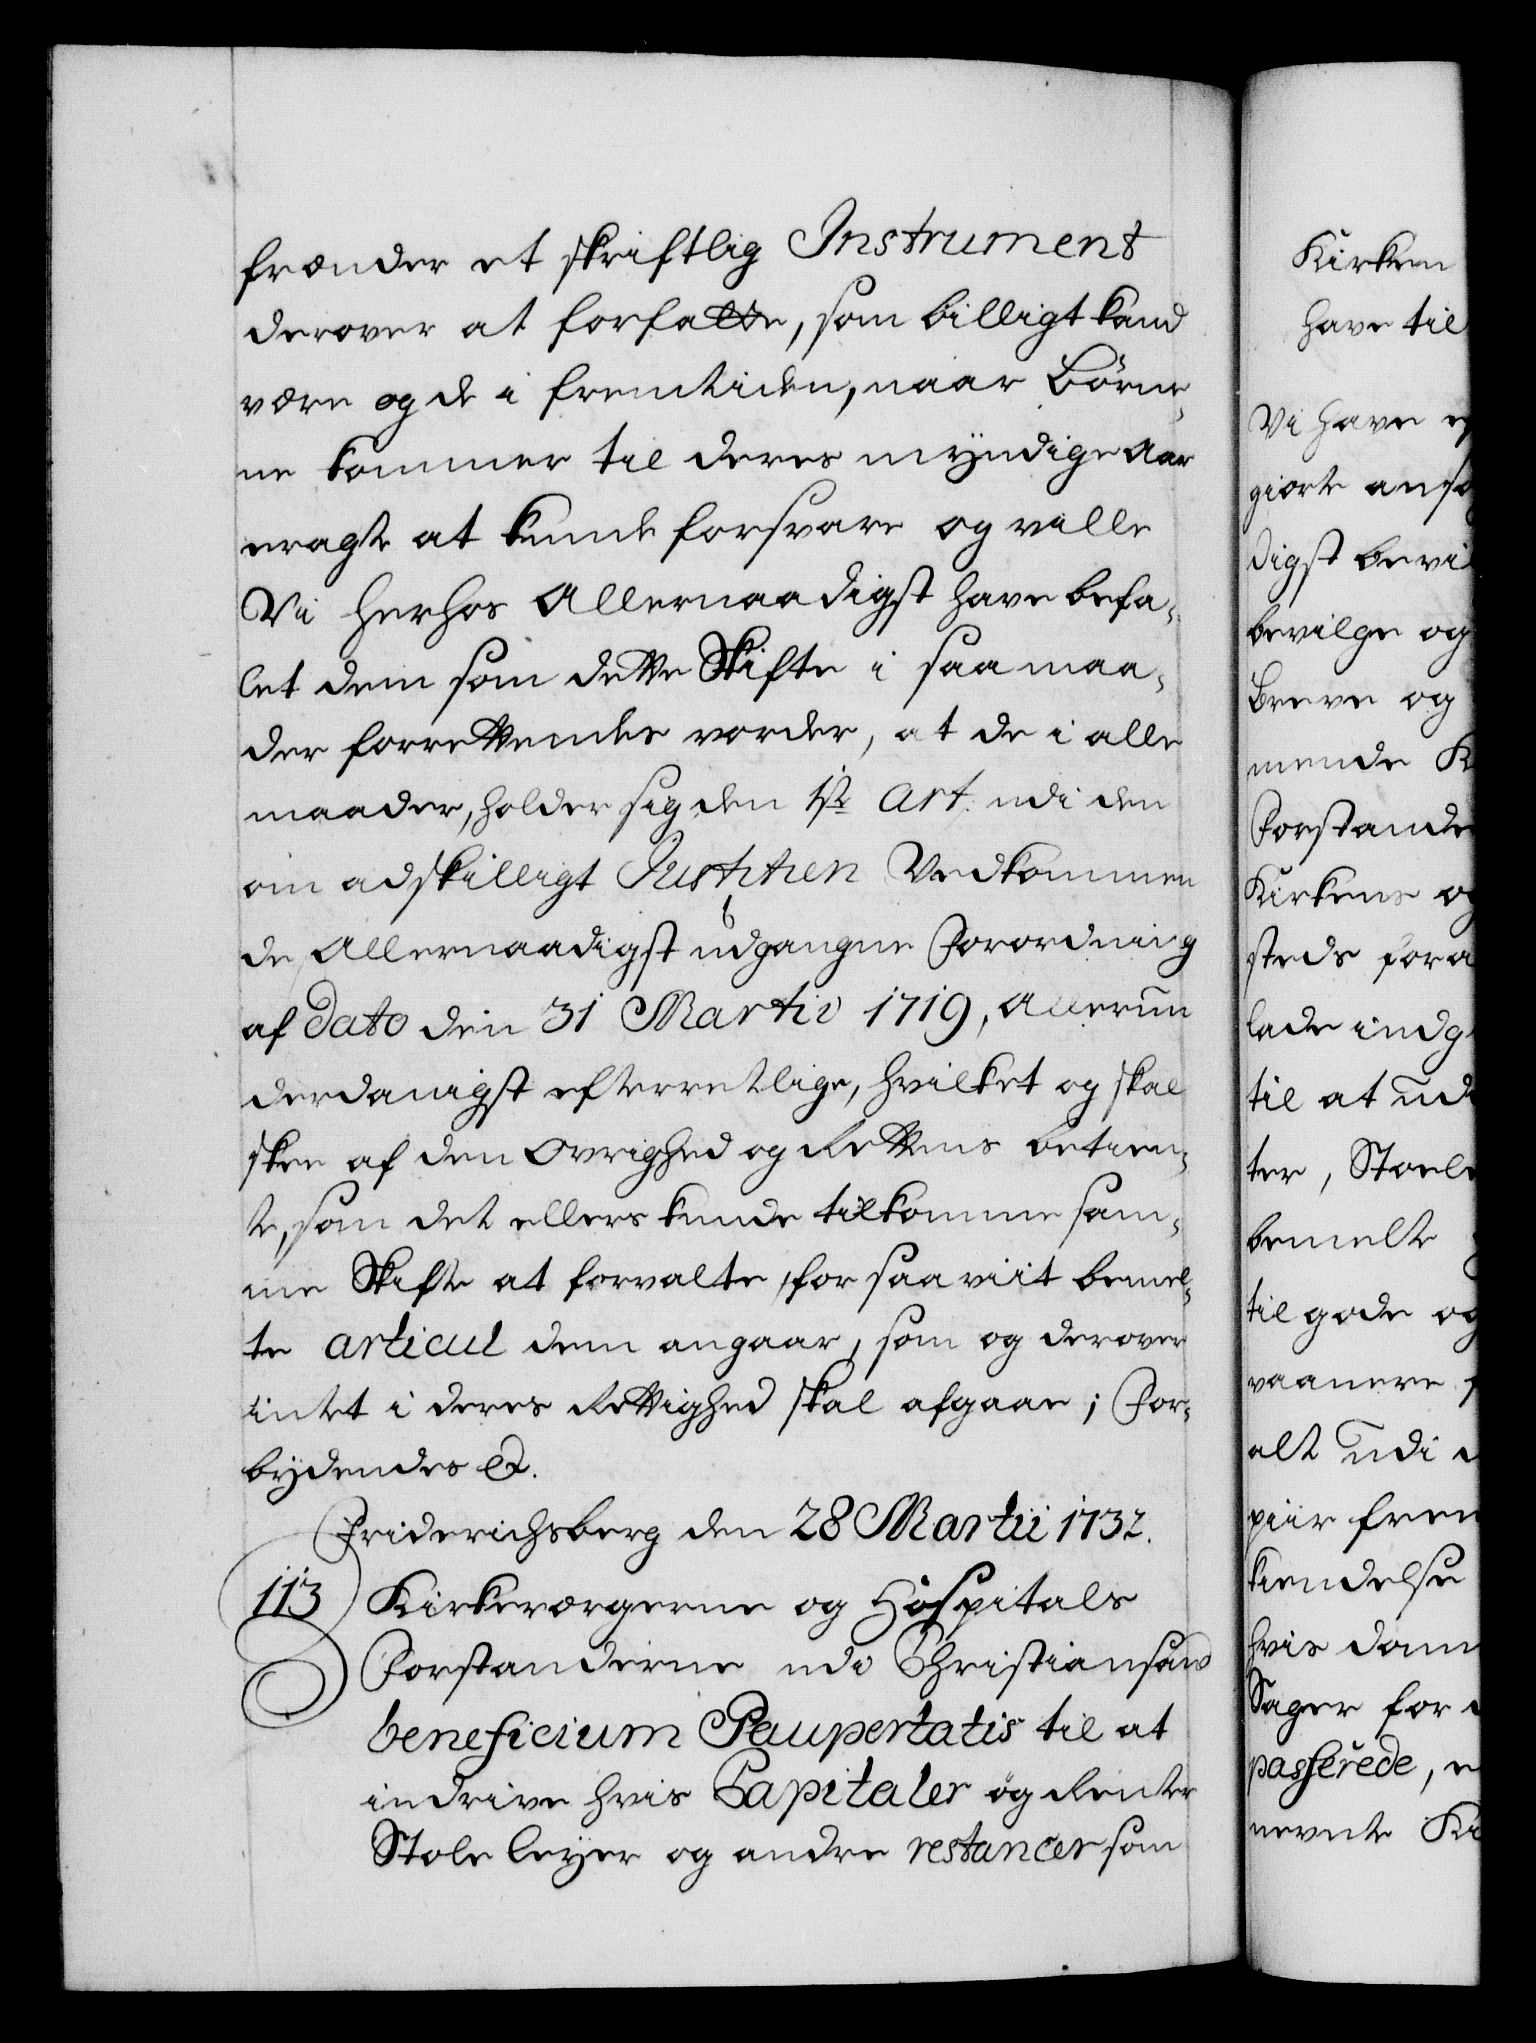 frænder et skriftlig Instrument
derover at forfatte, som billigt kand
være og de i fremtiden, naar Börne-
ne kommer til deres myndige Aar
eragte at kunde forsvare og ville
Vi herhos Allernaadigst have befa-
let dem som dette Skifte i saa maa-
der forrettendes vorder, at de i alle
maader, holder sig den 1ste Art. udi den
om adskilligt Justitien Vedkommen
de Allernaadigst udgangne Forordning
af Dato den 31 Martii 1719, Allerun
derdanigst efterretlige, hvilket og skal
skee af den Øvrighed og Rettens betien-
te, som det ellers kunde tilkomme sam-
me Skifte at forvalte, for saa viit bemel-
te articul dem angaar, som og derover
intet i deres Rettighed skal afgaae; For-
bydendes &.
Friderichsberg den 28 Martii 1732.
113 Kirkeværgerne og Hospitals
Forstanderne udi Christiansand
beneficium Paupertatis til at
indrive hvis Capitaler og Renter
Stole leyer og andre restancer som
Kirken
have til
Vi have
giorte
digst
bevilge og
Breve og
mende
Kirkens
steds
lade
til at
ter,
bemelte
til gode og
vaanere
alt udi
piir
kiendelse
hvis
Sager for
passerede,
nevnte